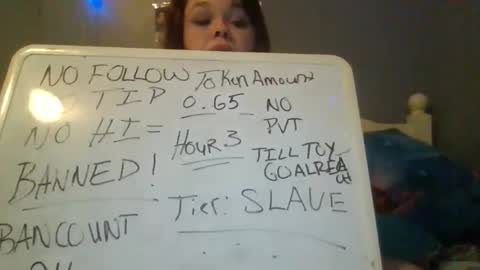 NO FOLLOW
TIP
NO HI =
BANNED!
BANCOUNT
Token Amount
0.65
HOUR 3
NO
PVT
TILL TOY
GOAL REA
Tier: SLAVE